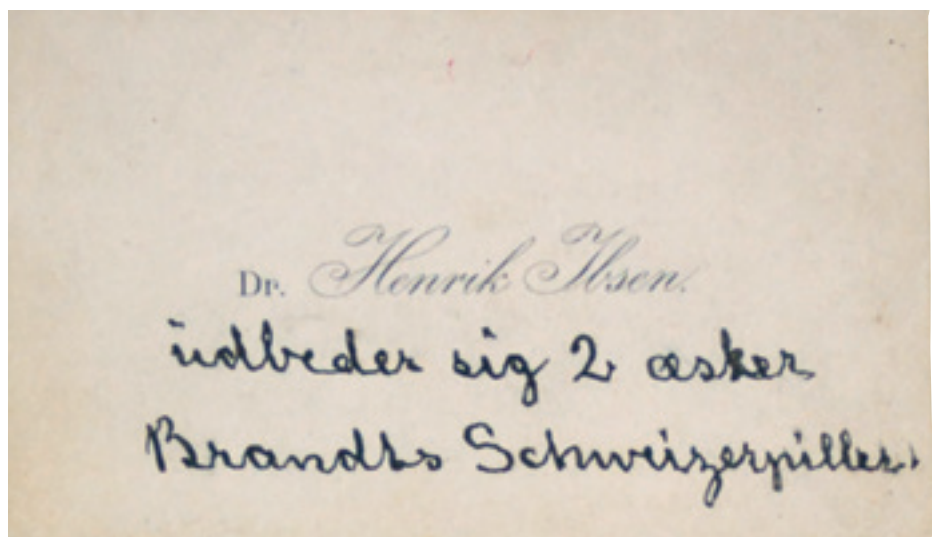 Dr. Henrik Ibsen.
udbeder sig 2 æsker
Brandts Schweizerpiller.